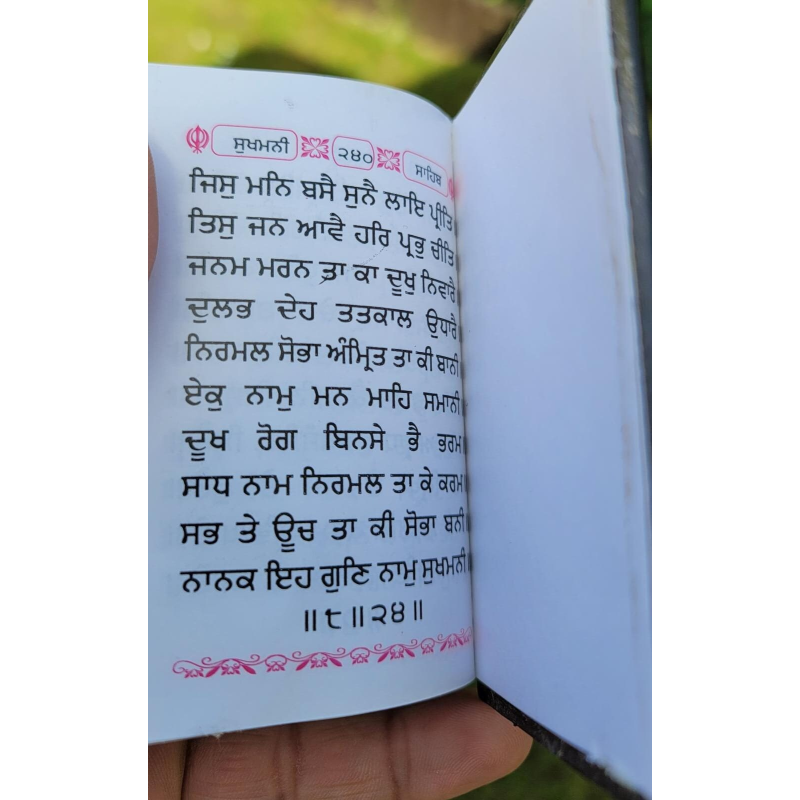 ਸੁਖਮਨੀ ੨੪੦ ਸਾਹਿਬ
ਜਿਸੁ ਮਨਿ ਬਸੈ ਸੁਨੈ ਲਾਇ ਪ੍ਰੀਤਿ
ਤਿਸੁ ਜਨ ਆਵੈ ਹਰਿ ਪ੍ਰਭੁ ਚੀਤਿ
ਜਨਮ ਮਰਨ ਤਾ ਕਾ ਦੂਖੁ ਨਿਵਾਰੈ
ਦੁਲਭ ਦੇਹ ਤਤਕਾਲ ਉਧਾਰੈ
ਨਿਰਮਲ ਸੋਭਾ ਅੰਮ੍ਰਿਤ ਤਾ ਕੀ ਬਾਨੀ
ਏਕੁ ਨਾਮੁ ਮਨ ਮਾਹਿ ਸਮਾਨੀ
ਦੂਖ ਰੋਗ ਬਿਨਸੇ ਭੈ ਭਰਮ
ਸਾਧ ਨਾਮ ਨਿਰਮਲ ਤਾ ਕੇ ਕਰਮ
ਸਭ ਤੇ ਊਚ ਤਾ ਕੀ ਸੋਭਾ ਬਨੀ
ਨਾਨਕ ਇਹ ਗੁਣਿ ਨਾਮੁ ਸੁਖਮਨੀ
॥੮॥੨੪॥